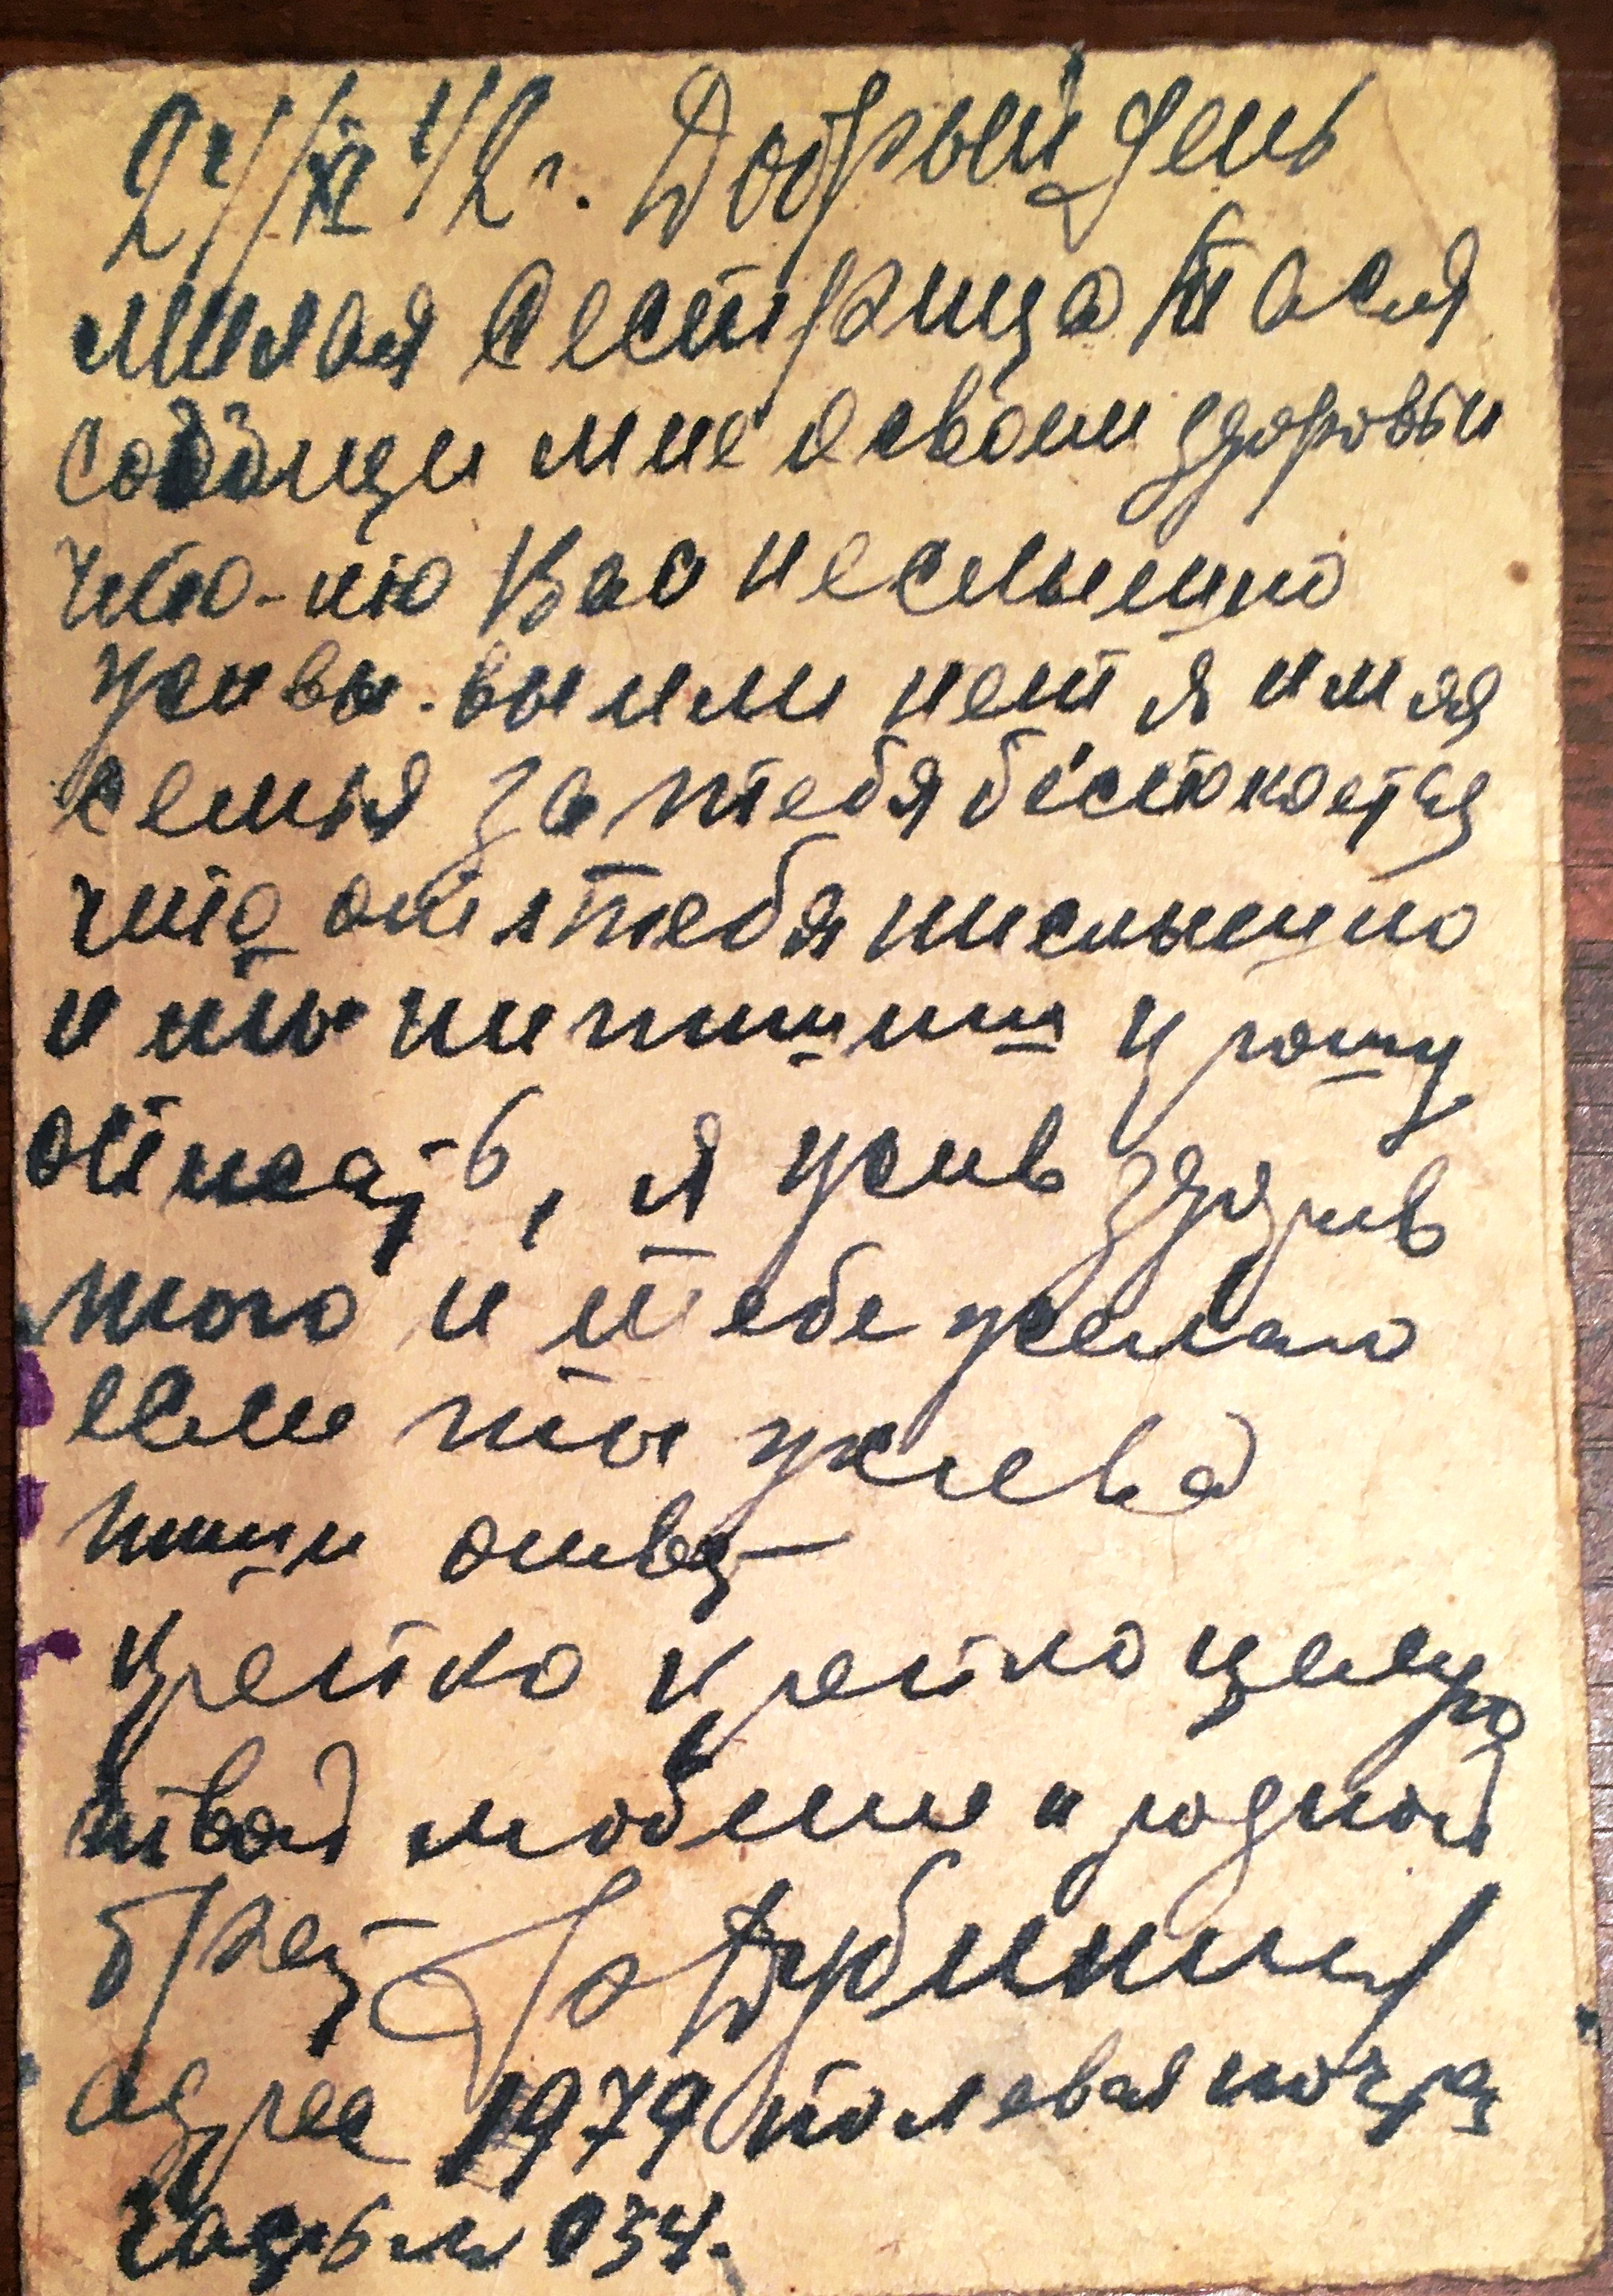 27/XI 42 г. Добрый день
милая Сестрица Тася
сообщи мне о своем здоровьи
что-то Вас неслышно
живы вы или нет я и моя
семья за тебя беспокоется
что от тебя неслышно
и ты не пишиш прошу
описать, я жив здоров
того и тебе желаю
если ты жива
пиши ответ
крепко крепко целую
твой любеме и родной
брат Дурбинин
адрес 1979 полевая почта
часть 034.